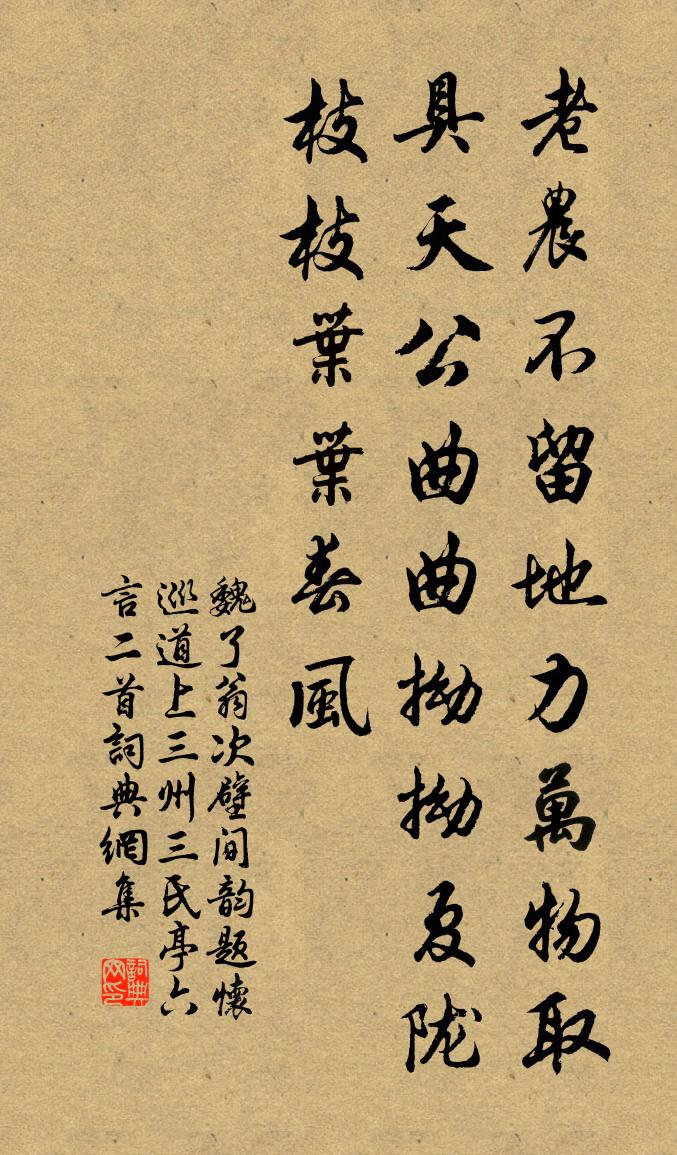 老農不留地力萬物取
具天公曲曲拗拗夏陇
枝枝葉葉春風
魏了翁次壁间韵题懷
巡道上三州三民亭六
言二首詞典網集
詞典网印